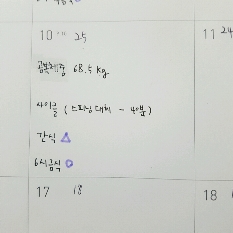 10 25
공복체중 68.5 kg
사이클 (스피닝 대체 - 40분)
간식 △
6시금식 ○
11 24
17 18
18